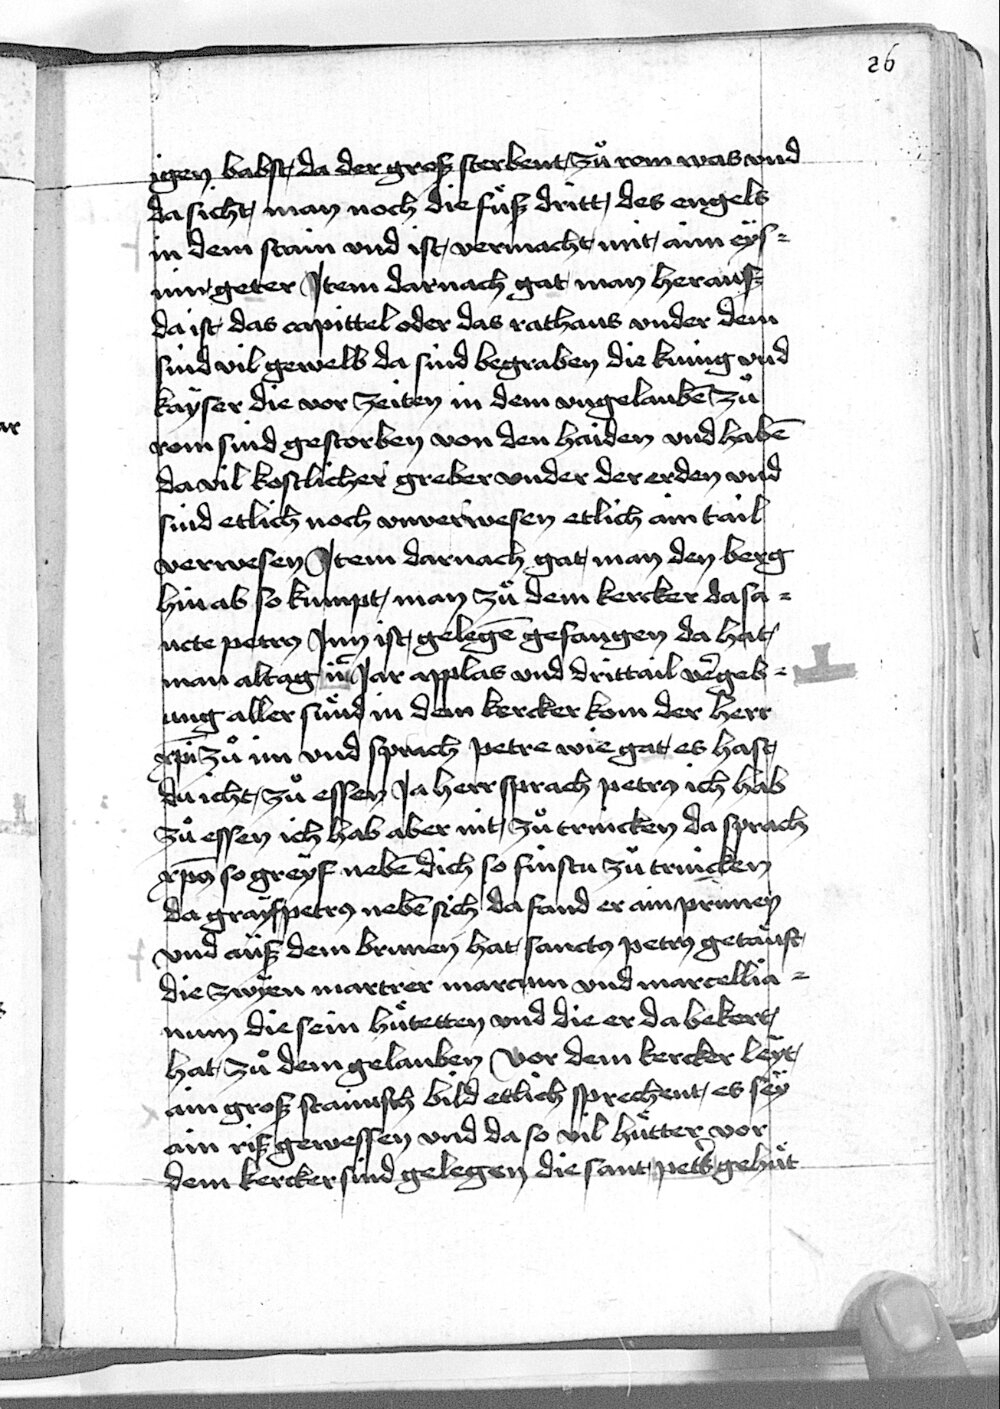 26
igen babst da der groß sterbent zů rom was vnd
da sicht man noch die fůß dritt des engels
in dem stain vnd ist vermacht mit ainn eÿs=
nin geter Jtem darnach gat man herauß
da ist das capittel oder das rathaus vnder dem
sind vil gewelb da sind begraben die kuͤnig vnd
kaÿser die vor zeiten in dem vngelaubē zů
rom sind gestorben von den haiden vnd habē
da vil kostlicher greber vnder der erden vnd
sind etlich noch vnverwesen etlich ain tail
verwesen Jtem darnach gat man den berg
hin ab so kumpt man zů dem kercker da sa=
ncte petrꝰ Jnn ist gelegē gefangen da hat
man altag Jar applas vnd drittail v̄geb=
ung aller sünd in dem kercker kom der herr
xp̄i zů im vnd sprach petre wie gat es hast
du icht zů essen Ja herr sprach petrꝰ ich hab
zů essen ich hab aber nit zů trincken da sprach
xp̄ꝰ so greÿf nebē dich so finstu zů trincken
da graÿf petrꝰ nebē sich da fand er ain prunen
vnd auß dem brunen hat sanctꝰ petrꝰ getäuft
die zwÿen martrer marcum vnd marcellia=
num die sein hůtetten vnd die er da bekert
hat zů dem gelauben Vor dem kercker leÿt
ain groß stainisch bild etlich sprechent es seÿ
ain riß gewessen vnd da so vil hůtter vor
dem kercker sind gelegen die sant pet̄s gehůt